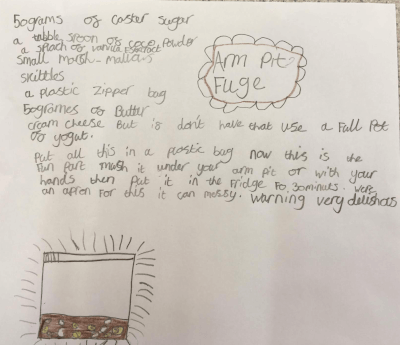 50grams of caster sugar
a table spoon of coco Powder
a splach of vanilla
small marsh-mallows
skittles
a plastic zipper bag
50grames of Butter
cream cheese But if don't have that use a full Pot
of yogut.
Put all this in a plastic bag now this is the
fun part mush it under your arm pit or with your
hands then put it in the fridge fo 30minuts. were
an apron for this it can messy. warning very delishous
Arm Pit
Fuge